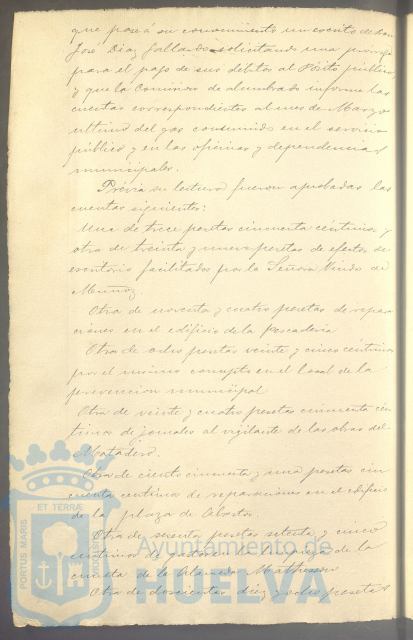 que pase á su conocimiento un escrito de Don
José Diaz Gallardo solicitando una prorroga
para el pago de sus débitos al Pósito público,
y que la Comision de alumbrado informe las
cuentas correspondientes al mes de Marzo
ultimo del gas consumido en el servicio
público y en las oficinas y dependencias
municipales.
Prévia su lectura fueron aprobadas las
cuentas siguientes:
Una de trece pesetas cincuenta céntimos y
otra de treinta y nueve pesetas de efectos de
escritorio facilitados por la Señora Viuda de
Muñoz.
Otra de noventa y cuatro pesetas de repara
ciones en el edificio de la Pescaderia
Otra de ocho pesetas veinte y cinco céntimos
por el mismo concepto en el local de la
prevencion municipal
Otra de veinte y cuatro pesetas cincuenta cén
timos de jornales al vigilante de las obras del
Matadero.
Otra de ciento cincuenta y una pesetas cin
cuenta centimos de reparaciones en el edificio
de la plaza de Abastos.
Otra de sesenta pesetas setenta y cinco
centimos de la de la
de la Alameda
Otra de doscientas diez y ocho pesetas
PORTUS MARIS ET TERRÆ CUSTODIA
Ayuntamiento de
HUELVA